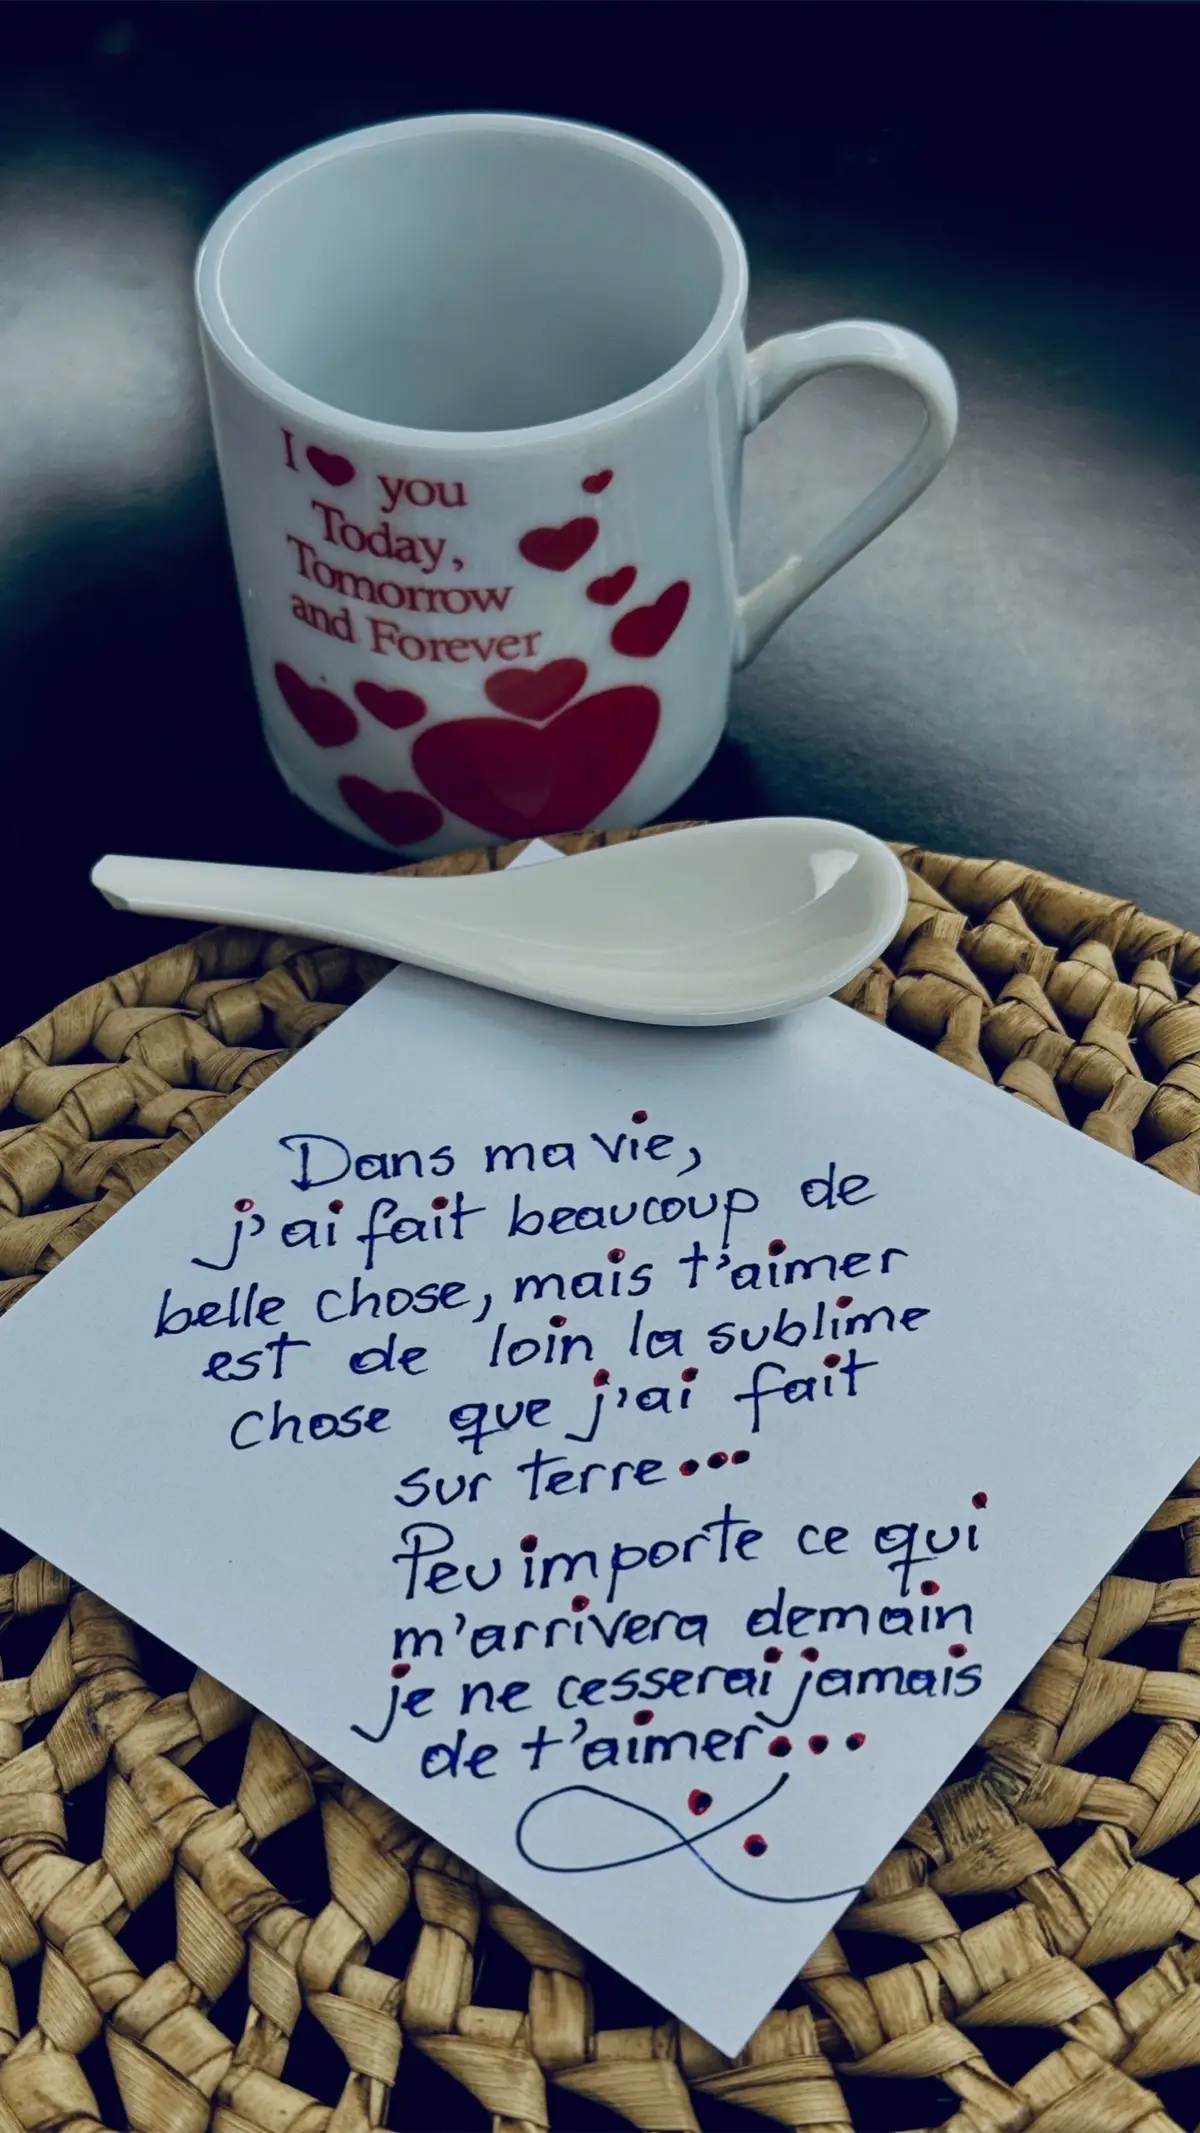 I ♥ you
Today,
Tomorrow
and Forever
Dans ma vie,
j'ai fait beaucoup de
belle chose, mais t'aimer
est de loin la sublime
chose que j'ai fait
sur terre...
Peu importe ce qui
m'arrivera demain
je ne cesserai jamais
de t'aimer...